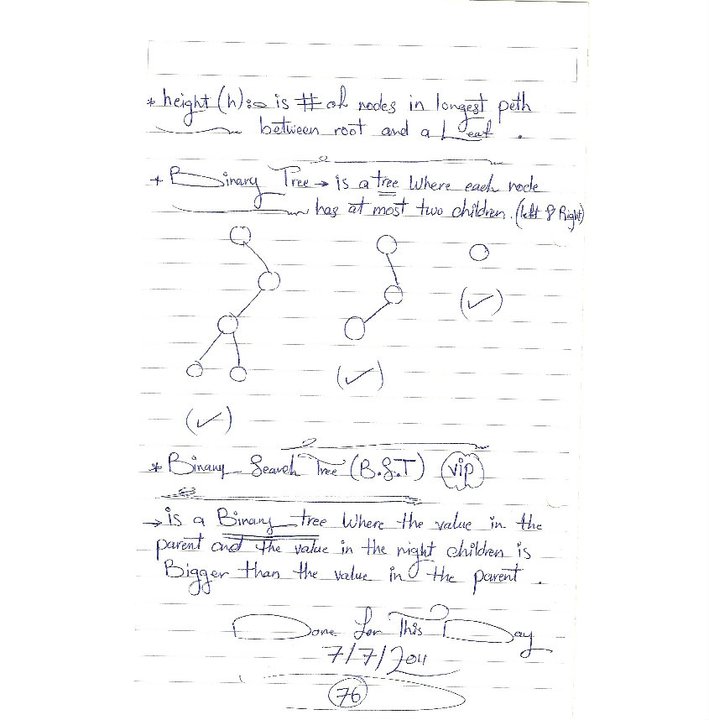 * height (h):⇒ is # of nodes in longest path
between root and a Leaf .
* Binary Tree → is a tree Where each node
has at most two children. (left & Right)
(✓)
(✓)
(✓)
* Binary Search Tree (B.S.T) vip
→ is a Binary tree Where the value in the
parent and the value in the right children is
Bigger than the value in the parent .
Done for This Day
7/7/2011
76